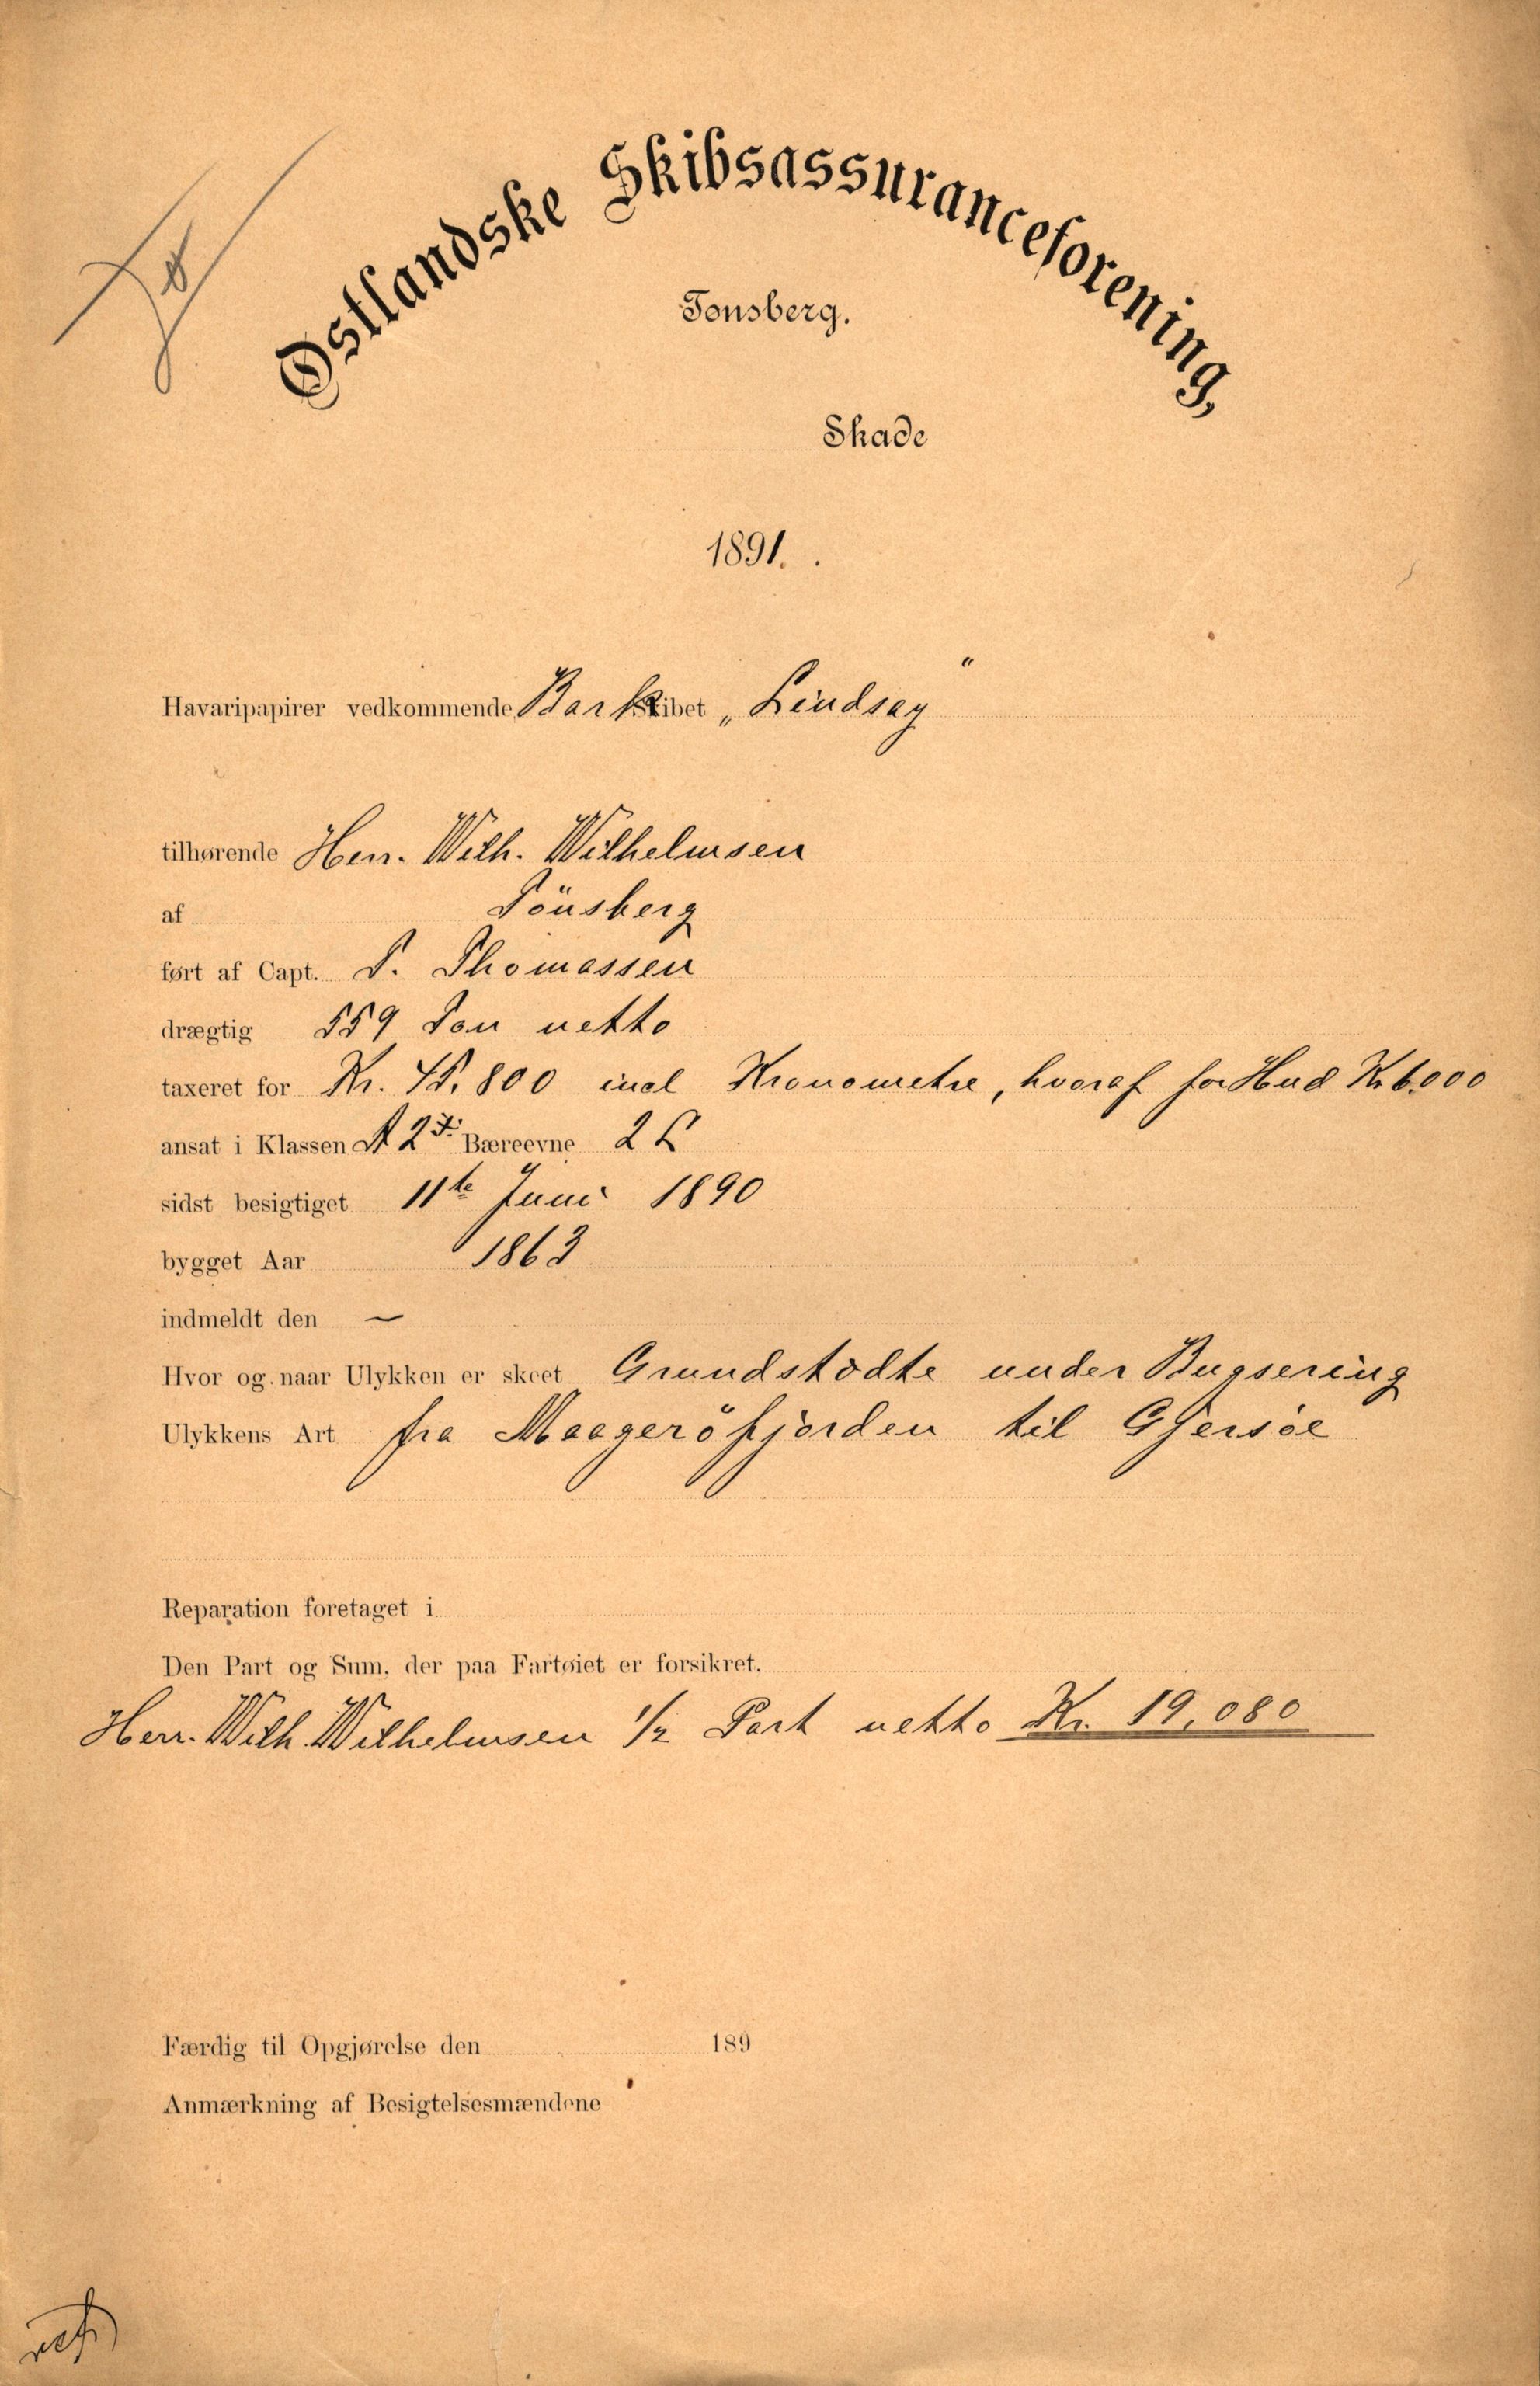 Østlandske Skibsassuranceforening,
Tønsberg.
Skade
1891.
Havaripapirer vedkommende Barkskibet „Lindsay"
tilhørende Herr. Wilh. Wilhelmsen
af Tönsberg
ført af Capt. T. Thomassen
drægtig 559 Ton netto
taxeret for Kr. 45.800 incl Kronometre, hvoraf for Hud Kr 6.000
ansat i Klassen A 2 Bæreevne
sidst besigtiget 11te Juni 1890
bygget Aar 1863
indmeldt den —
Hvor og naar Ulykken er skeet Grundstødte under Bugsering
Ulykkens Art fra Maageröfjorden til Gjersöe
Reparation foretaget i
Den Part og Sum, der paa Fartøiet er forsikret.
Herr. Wilh. Wilhelmsen 1/2 Part netto Kr. 19,080
Færdig til Opgjørelse den 189
Anmærkning af Besigtelsesmændene